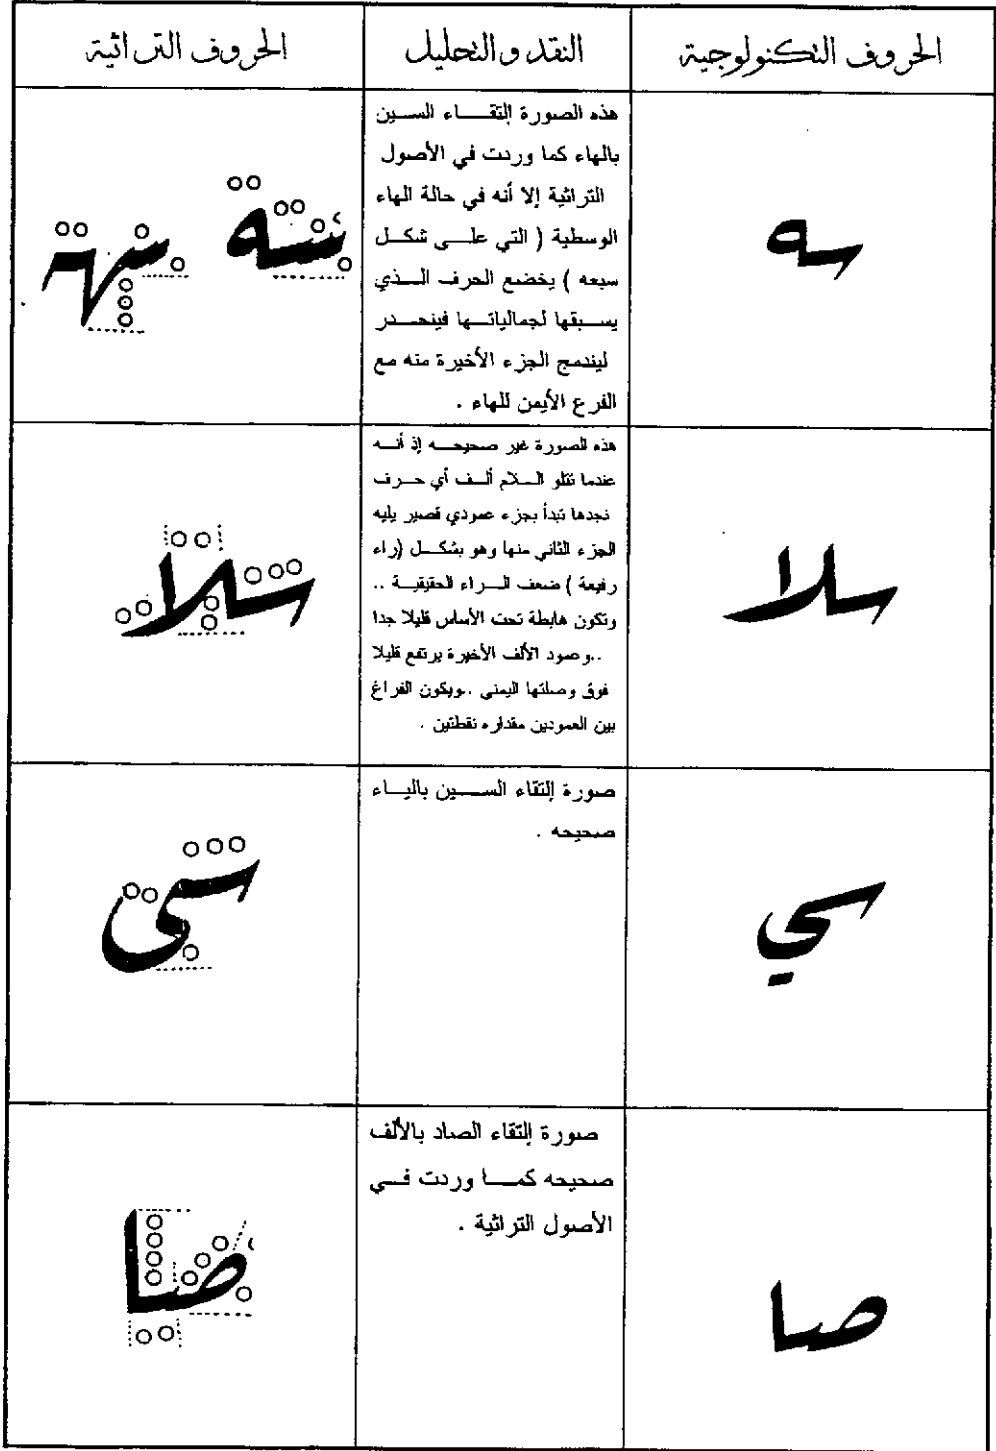 الحروف التكنولوجية
النقد والتحليل
الحروف التراثية
سه
هذه الصورة إلتقاء السين
بالهاء كما وردت في الأصول
التراثية إلا أنه في حالة الهاء
الوسطية ( التي على شكل
سبعه ) يخضع الحرف الذي
يسبقها لجمالياتها فينحدر
ليندمج الجزء الأخيرة منه مع
الفرع الأيمن للهاء .
سه سهـ
سلا
هذه الصورة غير صحيحه إذ أنه
عندما تتلو السلام ألف أي حرف
نجدها تبدأ بجزء عمودي قصير يليه
الجزء الثاني منها وهو بشكل (راء
رفيعة ) ضعف الراء الحقيقية ..
وتكون هابطة تحت الأساس قليلا جدا
..وعمود الألف الأخيرة يرتفع قليلا
فوق وصلتها اليمنى ..ويكون الفراغ
بين العمودين مقداره نقطتين .
سلا
سي
صورة إلتقاء السين بالياء
صحيحه .
سى
صا
صورة إلتقاء الصاد بالألف
صحيحه كما وردت في
الأصول التراثية .
صا